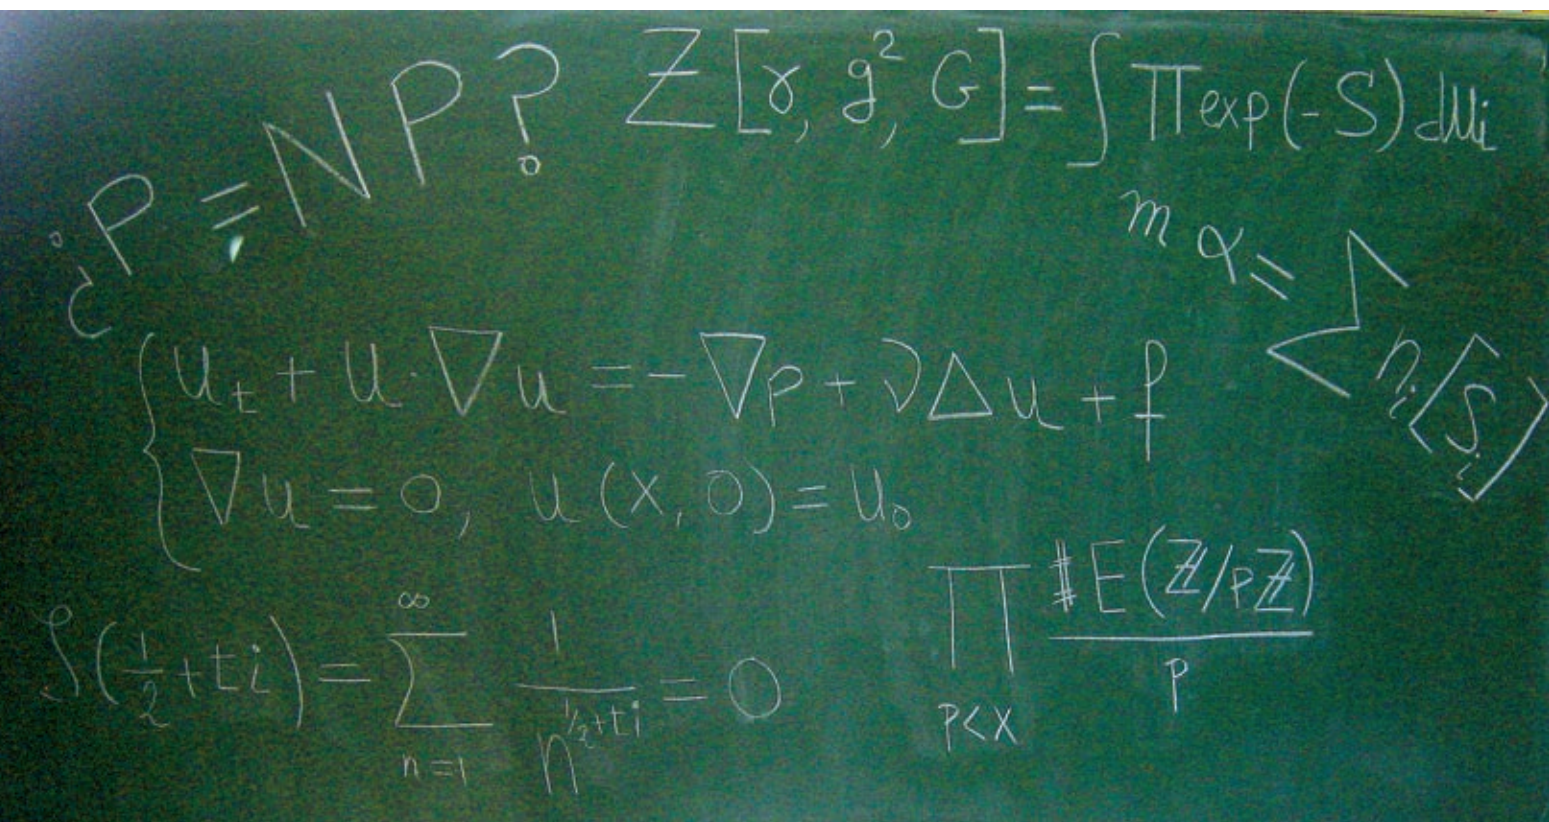 ¿P = NP?
Z[γ, g², G] = ∫ ∏ exp(-S) dμi
mα = ∑ nᵢ[Sᵢ]
uₜ + u · ∇u = -∇p + ν∆u + f
∇u = 0, u(x, 0) = u₀
ζ(1/2 + ti) = ∑ₙ₌₁^∞ 1/n^(1/2+ti) = 0
∏_(p<x) #E(ℤ/pℤ)/p